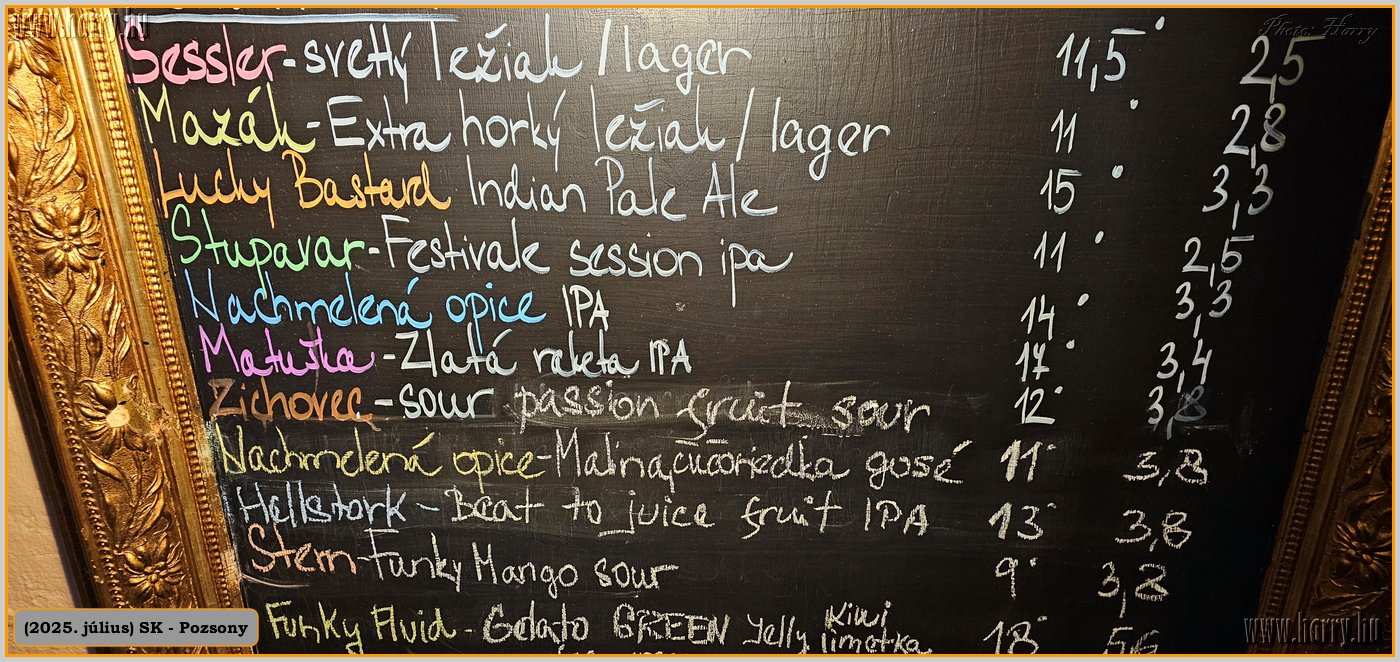 www.harry.hu
Photo: Harry
Sessler - svetlý ležiak / lager 11,5° 2,5
Mazák - Extra horký ležiak / lager 11° 2,8
Lucky Bastard Indian Pale Ale 15° 3,3
Stupavar - Festivale session ipa 11° 2,5
Nachmelená opice IPA 14° 3,3
Matuška - Zlatá raketa IPA 17° 3,4
Zichovec - sour passion fruit sour 12° 3,8
Nachmelená opice - Malina, čučoriedka gosé 11° 3,8
Hellstork - Beat to juice fruit IPA 13° 3,8
Stern - Funky Mango sour 9° 3,8
Funky Fluid - Gelato GREEN Jelly Kiwi limetka 18°
(2025. július) SK - Pozsony
www.harry.hu